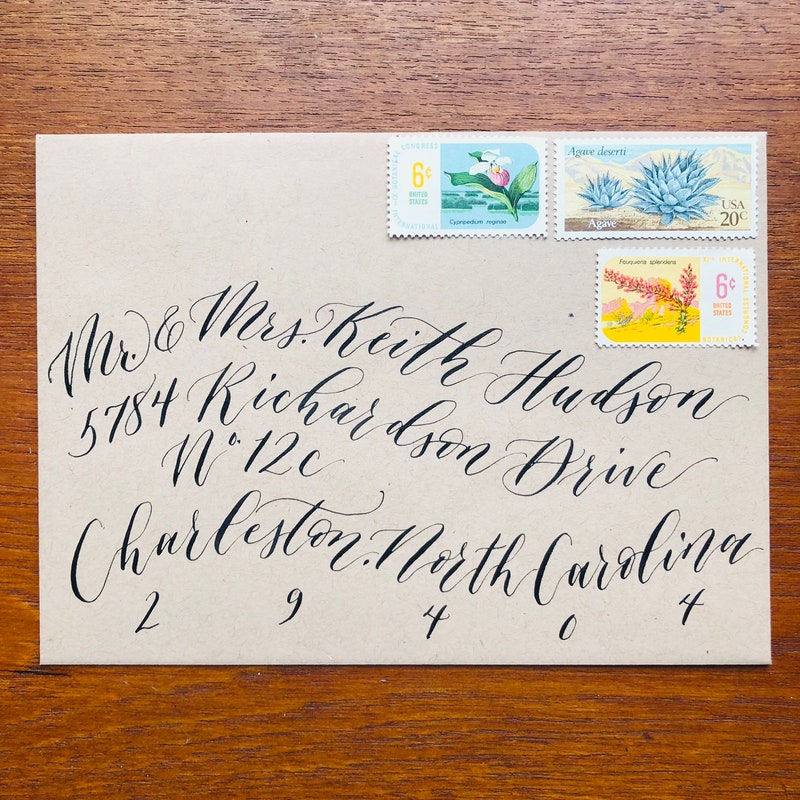 INTERNATIONAL BOTANICAL CONGRESS
6¢
UNITED
STATES
Cypripedium reginae
Agave deserti
Agave
USA
20c
Fouquieria splendens
6¢
UNITED
STATES
XI INTERNATIONAL BOTANICAL CONGRESS
Mr. & Mrs. Keith Hudson
5784 Richardson Drive
No. 12c
Charleston, North Carolina
2 9 4 0 4